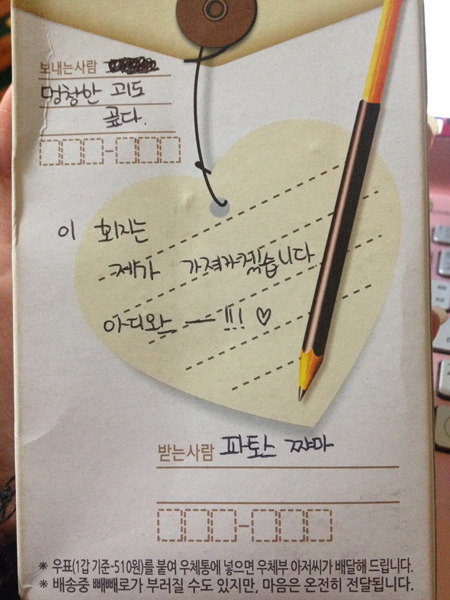 보내는사람
멍청한 괴도
곺다.
이 회지는
제가 가져가겠습니다
아디오스 ㅡ !!! ♡
받는사람 파토스 쨔마
* 우표(1갑 기준-510원)를 붙여 우체통에 넣으면 우체부 아저씨가 배달해 드립니다.
* 배송중 빼빼로가 부러질 수도 있지만, 마음은 온전히 전달됩니다.